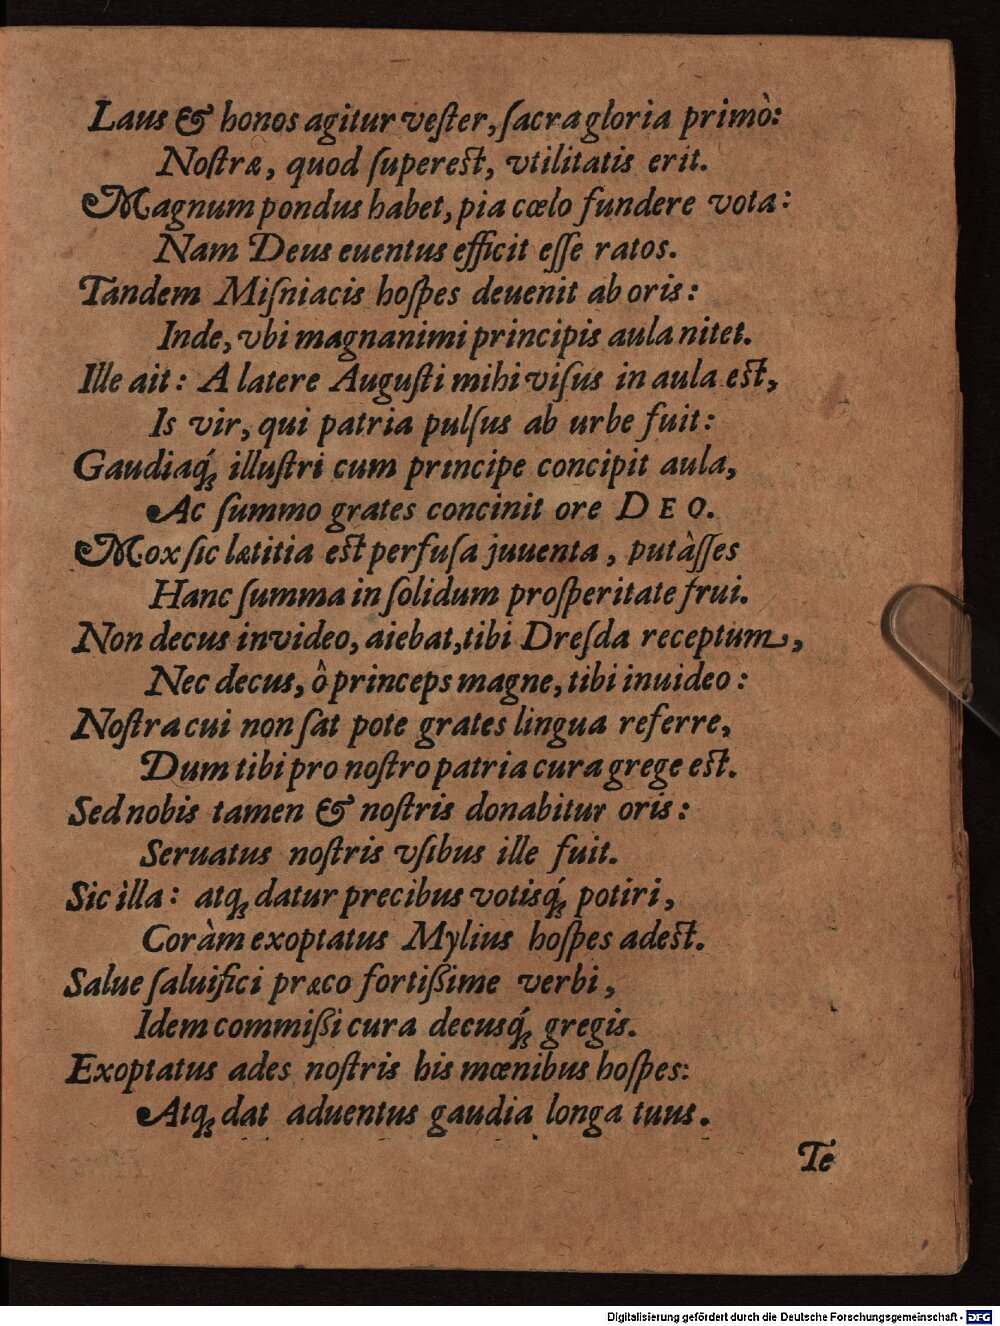 Laus & honos agitur veſter, ſacra gloria primò:
Noſtræ, quod ſupereſt, vtilitatis erit.
Magnum pondus habet, pia cœlo fundere vota:
Nam Deus euentus efficit eſſe ratos.
Tandem Miſniacis hoſpes deuenit ab oris:
Inde, vbi magnanimi principis aula nitet.
Ille ait: A latere Auguſti mihi viſus in aula eſt,
Is vir, qui patria pulſus ab urbe fuit:
Gaudiaq́ꝫ illuſtri cum principe concipit aula,
Ac ſummo grates concinit ore DEO.
Mox ſic lætitia eſt perfuſa juuenta, putàſſes
Hanc ſumma in ſolidum proſperitate frui.
Non decus invideo, aiebat, tibi Dreſda receptum,
Nec decus, ô princeps magne, tibi inuideo:
Noſtra cui non ſat pote grates lingua referre,
Dum tibi pro noſtro patria cura grege eſt.
Sed nobis tamen & noſtris donabitur oris:
Seruatus noſtris vſibus ille fuit.
Sic illa: atqꝫ datur precibus votisq́ꝫ potiri,
Coràm exoptatus Mylius hoſpes adeſt.
Salue ſaluifici præco fortißime verbi,
Idem commißi cura decusq́ꝫ gregis.
Exoptatus ades noſtris his mœnibus hoſpes:
Atqꝫ dat aduentus gaudia longa tuus.
Te
Digitalisierung gefördert durch die Deutsche Forschungsgemeinschaft - DFG